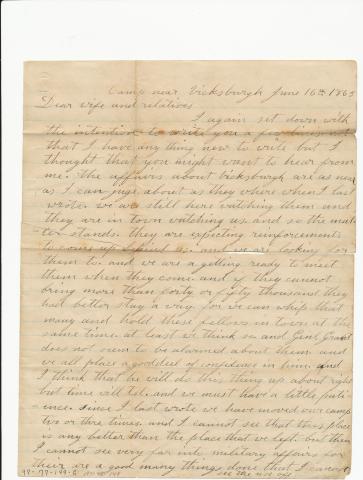 Camp near Vicksburgh June 16th 1863
Dear wife and relatives
I again set down with
the intention to write you a few lines not
that I have any thing new to write but I
thought that you might want to hear from
me. the affairs about vicksburgh are as near
as I can juge about as they where when I last
wrote. we are still here watching them and
they are in town watching us. and so the mat-
ter stands. they are expecting reinforcements
to come up behind us. and we are looking for
them to. and we are a getting ready to meet
them when they come and if they cannot
bring more than forty or fifty thousand they
had better stay a way. for we can whip that
many and hold these fellows in town at the
same time. at least we think so and Genl Grant
does not seem to be alarmed about them. and
we all place a good deel of confidence in him. and
I think that he will do this thing up about right
but time will tel. and we must have a little pati-
ence. since I last wrote we have moved our camp
two or thre times. and I cannot see that this place
is any better than the place that we left. but then
I cannot see very far into military affairs for
their are a good many things done that I cannot
see the use of